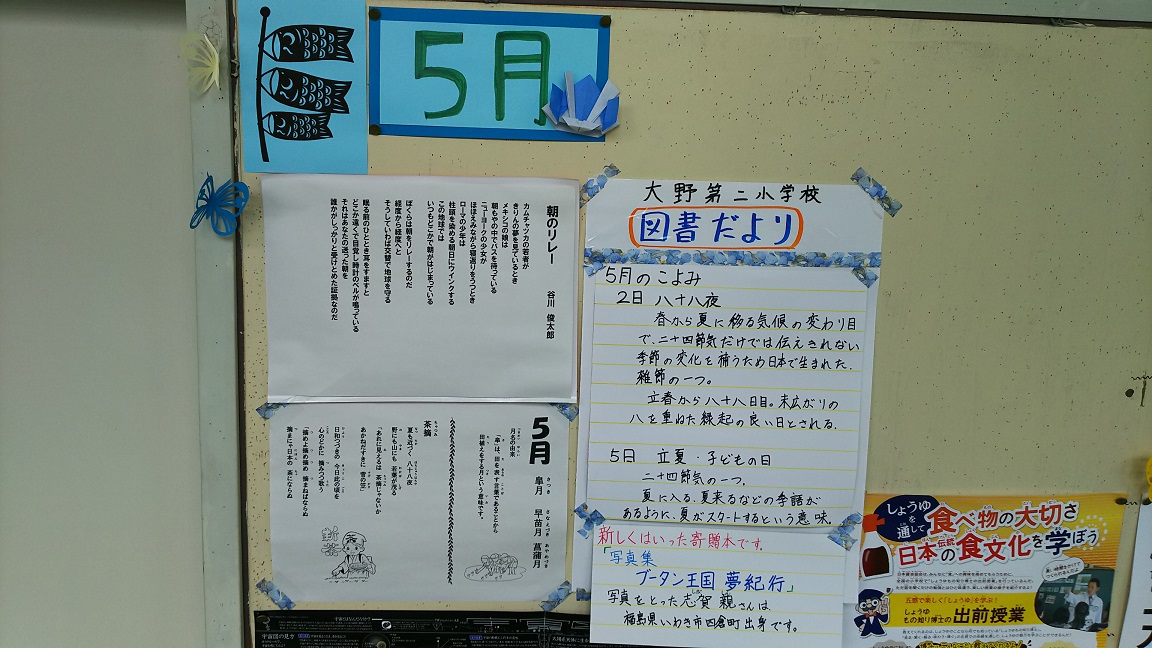 5月
朝のリレー
谷川 俊太郎
カムチャツカの若者が
きりんの夢を見ているとき
メキシコの娘は
朝もやの中でバスを待っている
ニューヨークの少女が
ほほえみながら寝返りをうつとき
ローマの少年は
柱頭を染める朝日にウインクする
この地球では
いつもどこかで朝がはじまっている
ぼくらは朝をリレーするのだ
経度から経度へと
そうしていわば交替で地球を守る
眠る前のひととき耳をすますと
どこか遠くで目覚し時計のベルが鳴っている
それはあなたの送った朝を
誰かがしっかりと受けとめた証拠なのだ
5月 皐月 早苗月 菖蒲月
月名の由来
「皐」は、田を表す言葉であることから
田植えをする月という意味です。
茶摘
夏も近づく 八十八夜
野にも山にも 若葉が茂る
「あれに見えるは 茶摘じゃないか
あかねだすきに 菅の笠」
日和つづきの 今日此の頃を
心のどかに 摘みつつ歌う
「摘めよ摘め摘め 摘まねばならぬ
摘まにゃ日本の 茶にならぬ
野茶
大野第二小学校
図書だより
5月のこよみ
2日 八十八夜
春から夏に移る気候の変わり目
で、二十四節気だけでは伝えきれない
季節の変化を補うため日本で生まれた、
雑節の一つ。
立春から八十八日目。末広がりの
八を重ねた縁起の良い日とされる、
5日 立夏・子どもの日
二十四節気の一つ。
夏に入る、夏来るなどの季語が
あるように、夏がスタートするという意味。
新しくはいった寄贈本です。
「写真集
ブータン王国 夢紀行」
写真をとった志賀 親さんは、
福島県いわき市四倉町出身です。
しょうゆ
を
通して
食べ物の大切さ
日本伝統の食文化を学ぼう
五感で楽しく「しょうゆ」を学ぶ!
しょうゆ
もの知り博士の出前授業
宇宙図の見方